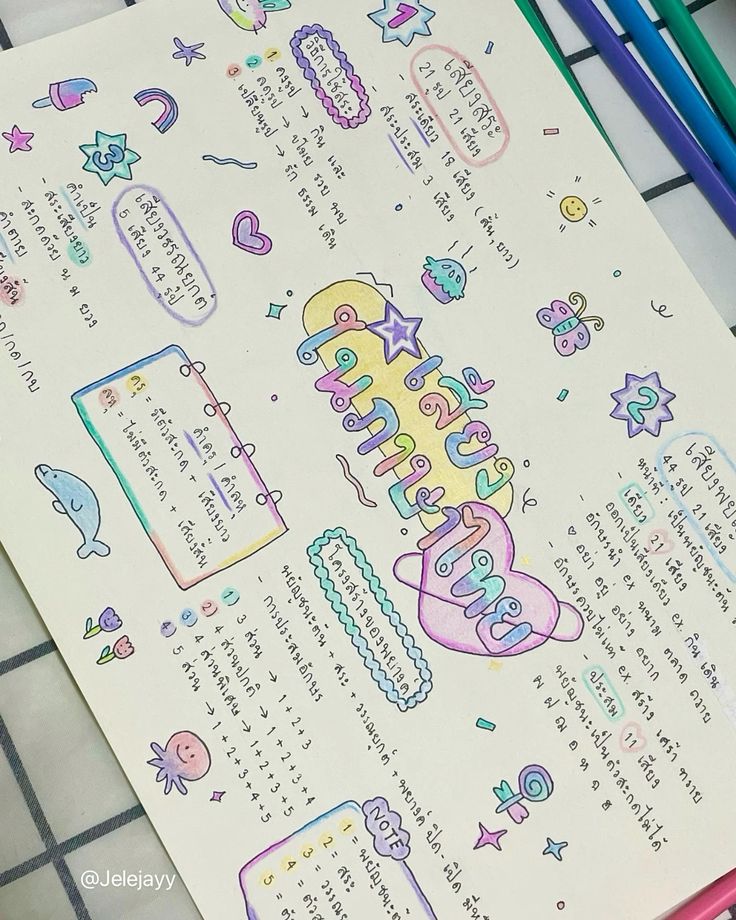 เสียง
ในภาษา
ไทย
1
เสียงสระ
21 รูป 21 เสียง
- สระเดี่ยว 18 เสียง (สั้น, ยาว)
- สระประสม 3 เสียง
วิธีการใช้สระ
1 คงรูป → กิน และ
2 ลดรูป → ขโมย รวย พบ
3 เปลี่ยนรูป → รัก ธรรม เดิน
2
เสียงพยัญ
44 รูป 21 เสียง
หน้าที่ : เป็นพยัญชนะต้น
- เดี่ยว 21 เสียง
ออกเป็นเสียงเดียว ex. กิน เดิน
อักษรนำ ex หนาม ตลาด ถวาย
อย่า อยู่ อย่าง อยาก
อักษรควบไม่แท้ ex สร้าง เศร้า
- ประสม 11 เสียง
พยัญชนะเป็นตัวสะกดไม่ได้
3
เสียงวรรณยุกต์
5 เสียง 44 รูป
- คำเป็น
- สระเสียงยาว
- สะกดด้วย น ม ยวง
คำตาย
กก/กด/กบ
คำครุ / คำลหุ
ครุ = มีตัวสะกด + เสียงยาว
ลหุ = ไม่มีตัวสะกด + เสียงสั้น
โครงสร้างของพยางค์
พยัญชนะต้น + สระ + วรรณยุกต์ + พยางค์ ปิด - เปิด
- การประสมอักษร
1 3 ส่วน → 1+2+3
2 4 ส่วนปกติ → 1+2+3+4
3 4 ส่วนพิเศษ → 1+2+3+5
4 5 ส่วน → 1+2+3+4+5
NOTE
1 = พยัญชนะต้น
2 = สระ
3 = วรรณ
4 = ตัวส
5 = ตั
@Jelejayy